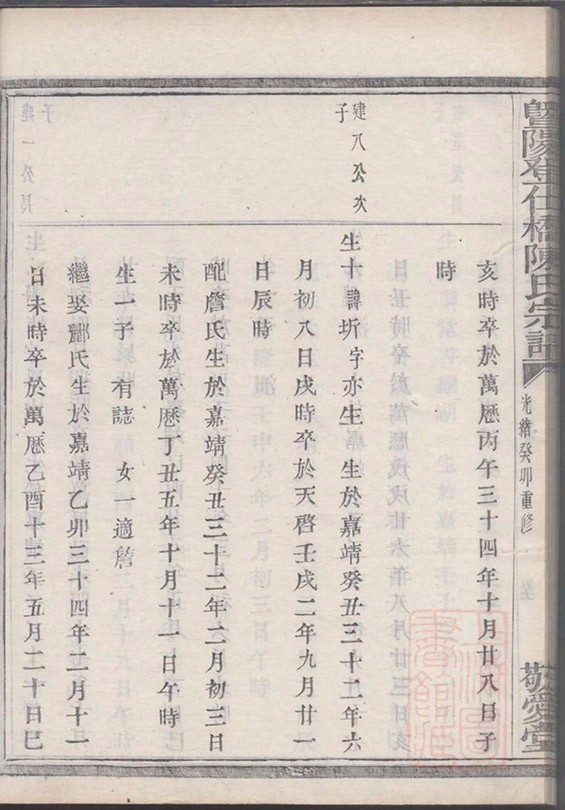 暨陽登仕橋陳氏宗譜
光緒癸卯重修
敬愛堂
亥時卒於萬厯丙午三十四年十月廿八日子
時
建八公次
子
生十諱圻字亦生 生於嘉靖癸丑三十二年六
月初八日戌時卒於天啓壬戌二年九月廿一
日辰時
配詹氏生於嘉靖癸丑三十二年二月初三日
未時卒於萬厯丁丑五年十月十一日午時
生一子 有誌 女一適詹
繼娶酈氏生於嘉靖乙卯三十四年二月十一
日未時卒於萬厯乙酉十三年五月二十日巳